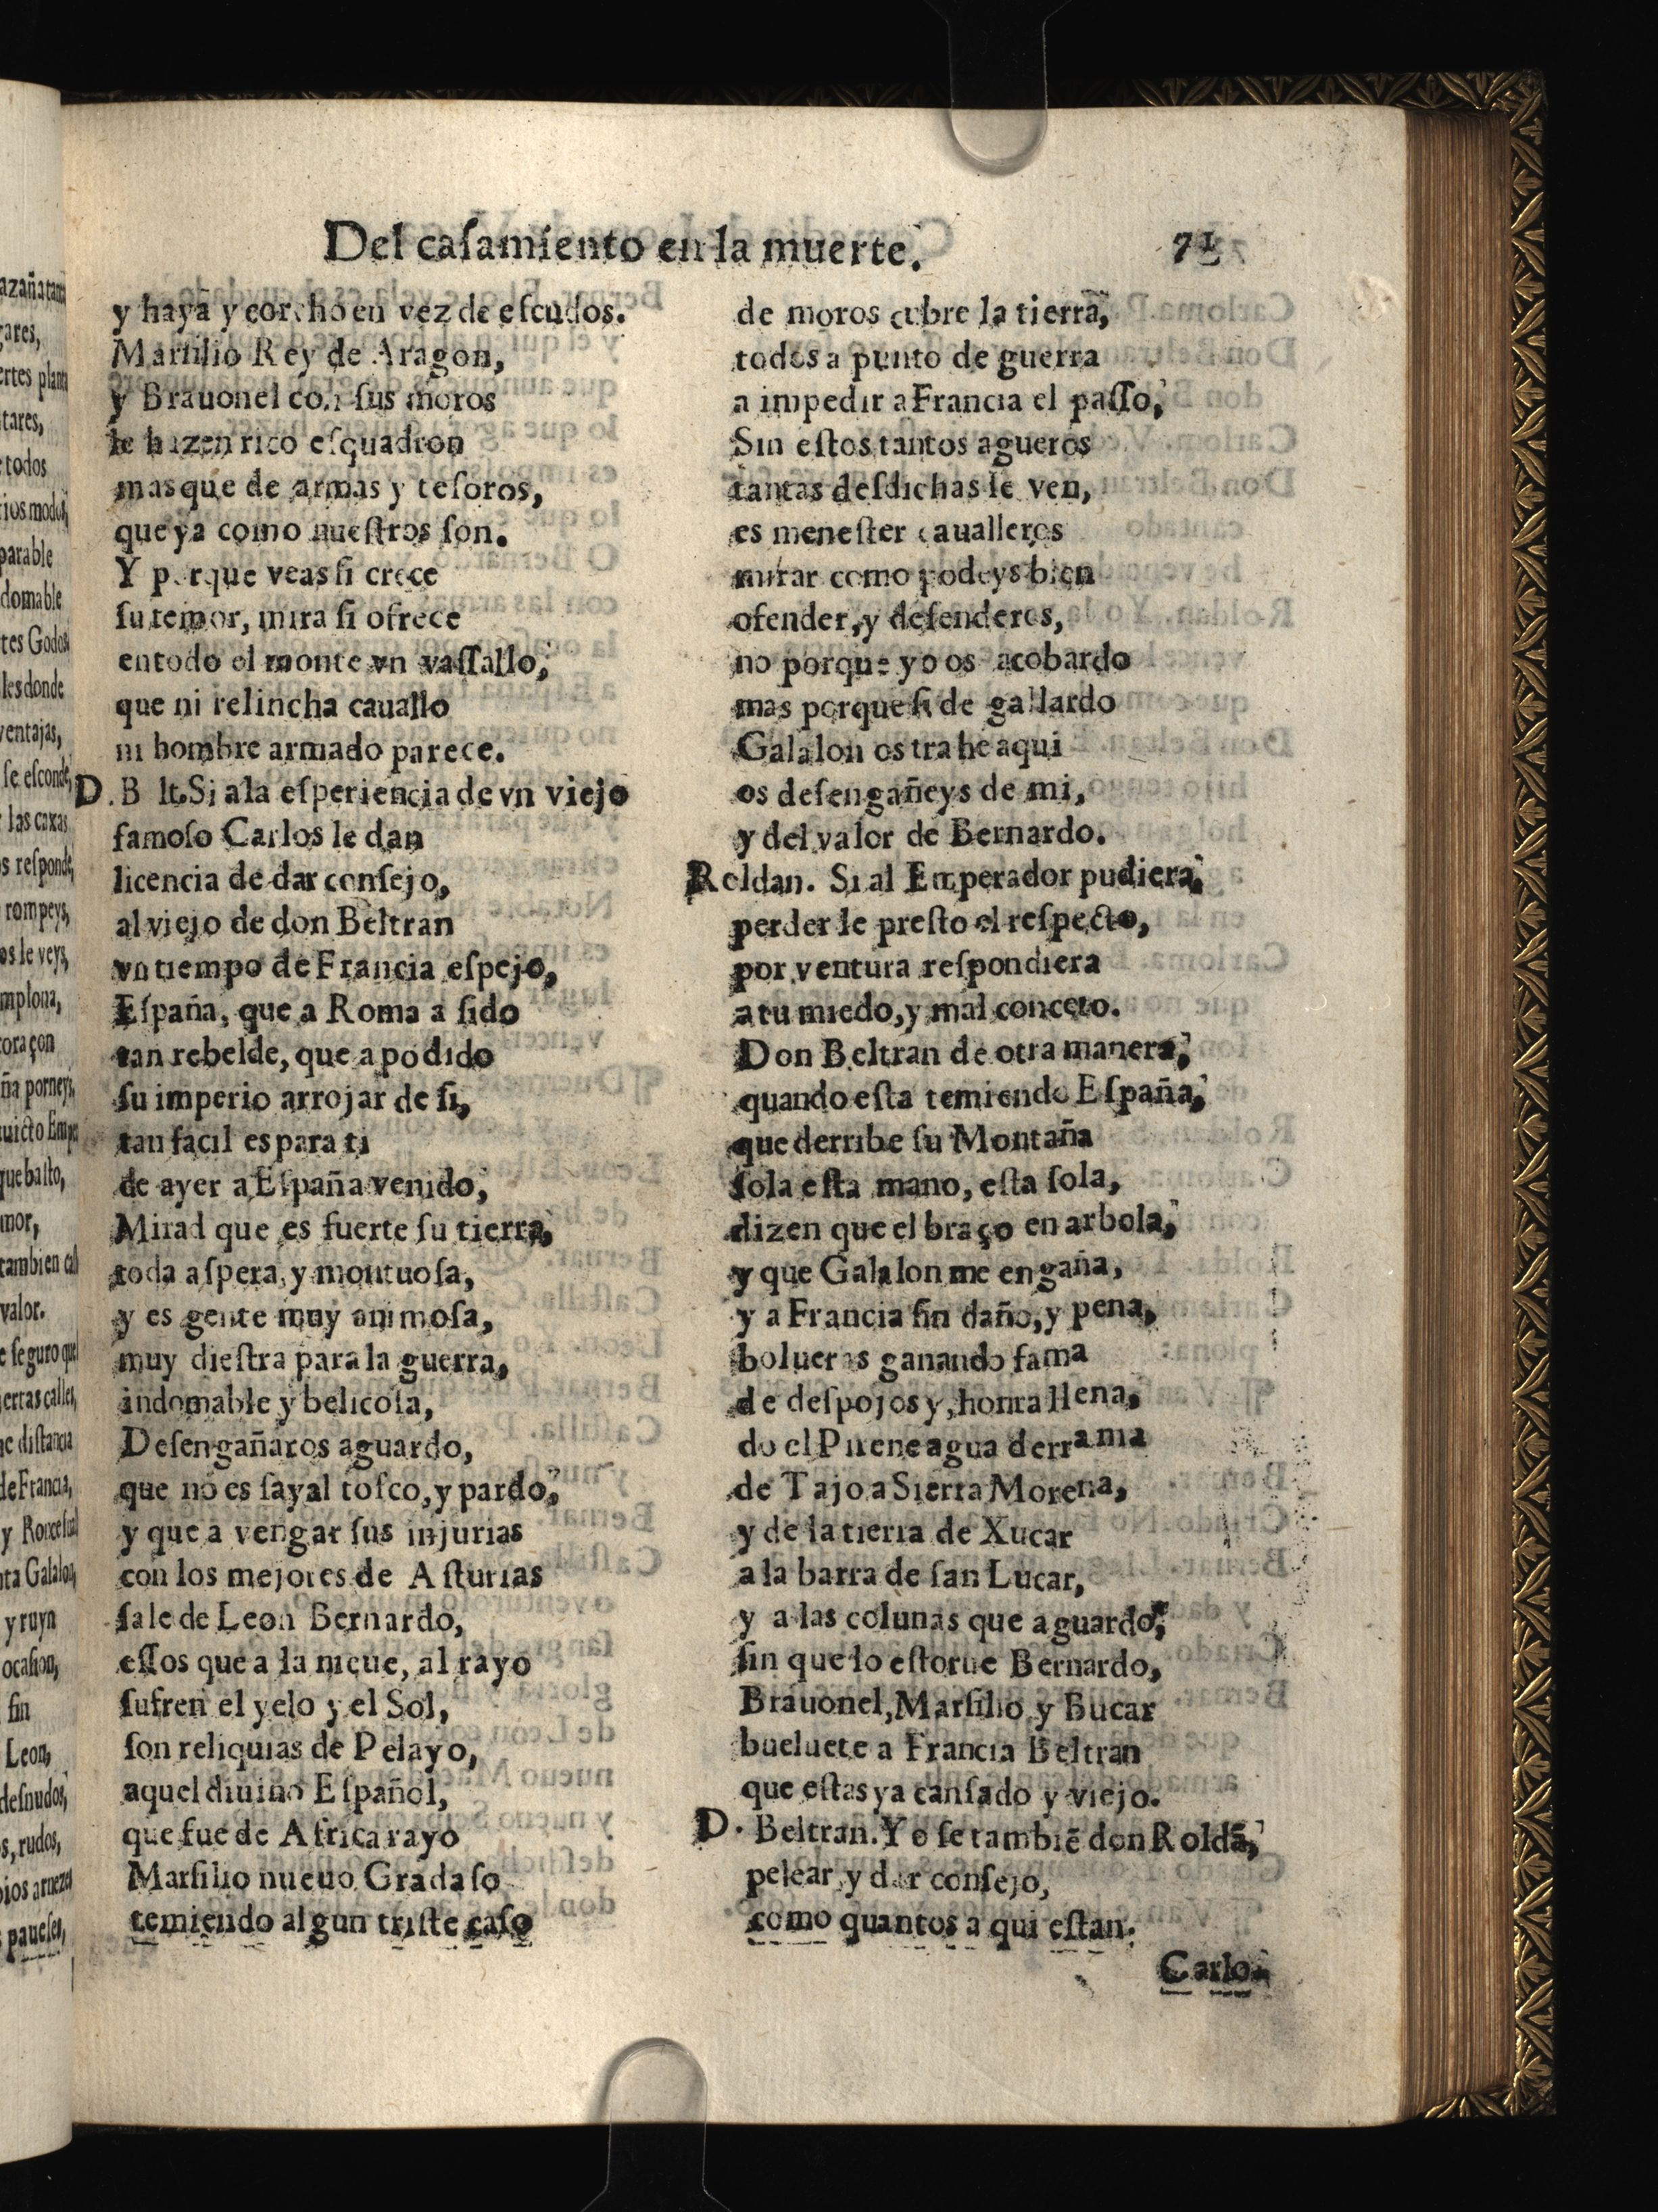 Del caſamiento en la muerte. 71
y haya y corcho en vez de eſcudos.
Marſilio Rey de Aragon,
y Brauonel con ſus moros
le hazen rico eſquadron
mas que de armas y teſoros,
que ya como nueſtros ſon.
Y porque veas ſi crece
ſu temor, mira ſi ofrece
en todo el monte vn vaſſallo,
que ni relincha cauallo
ni hombre armado parece.
D. B lt. Si a la eſperiencia de vn viejo
famoſo Carlos le dan
licencia de dar conſejo,
al viejo de don Beltran
vn tiempo de Francia eſpejo,
Eſpaña, que a Roma a ſido
tan rebelde, que a podido
ſu imperio arrojar de ſi,
tan facil es para ti
de ayer a Eſpaña venido,
Mirad que es fuerte ſu tierra,
toda aſpera, y montuoſa,
y es gente muy animoſa,
muy dieſtra para la guerra,
indomable y belicoſa,
Deſengañaros aguardo,
que no es ſayal toſco, y pardo,
y que a vengar ſus injurias
con los mejores de Aſturias
ſale de Leon Bernardo,
eſſos que a la nieue, al rayo
ſufren el yelo y el Sol,
ſon reliquias de Pelayo,
aquel diuino Eſpañol,
que fue de Africa rayo
Marſilio nueuo Gradaſo
temiendo algun triſte caſo
de moros cubre la tierra,
todos a punto de guerra
a impedir a Francia el paſſo,
Sin eſtos tantos agueros
tantas deſdichas ſe ven,
es meneſter caualleros
mirar como podeys bien
ofender, y defenderos,
no porque yo os acobardo
mas porque ſi de gallardo
Galalon os trahe aqui
os deſengañeys de mi,
y del valor de Bernardo.
Roldan. Si al Emperador pudiera,
perder le preſto el reſpecto,
por ventura reſpondiera
a tu miedo, y mal conceto.
Don Beltran de otra manera,
quando eſta temiendo Eſpaña,
que derribe ſu Montaña
ſola eſta mano, eſta ſola,
dizen que el braço en arbola,
y que Galalon me engaña,
y a Francia ſin daño, y pena,
bolueras ganando fama
de deſpojos y, honra llena,
do el Pirene agua derrama
de Tajo a Sierra Morena,
y de la tierra de Xucar
a la barra de ſan Lucar,
y a las colunas que aguardo,
ſin que lo eſtorue Bernardo,
Brauonel, Marſilio y Bucar
bueluete a Francia Beltran
que eſtas ya canſado y viejo.
D. Beltran. Yo ſe tambiē don Roldā,
pelear y dar conſejo,
como quantos a qui eſtan.
Carlo